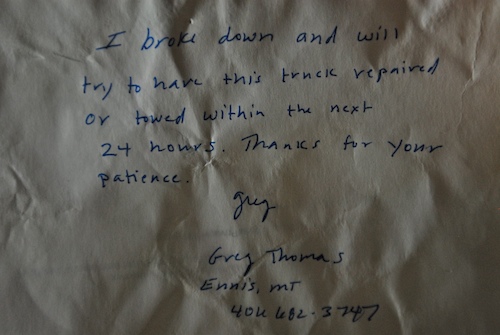 I broke down and will
try to have this truck repaired
or towed within the next
24 hours. Thanks for your
patience.
Greg
Greg Thomas
Ennis, MT
406 682.3747